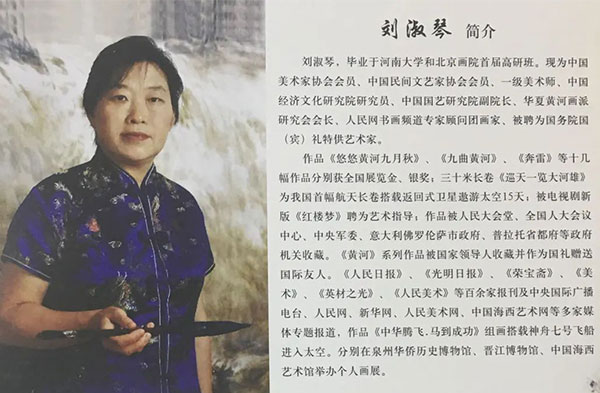 刘淑琴 简介
刘淑琴，毕业于河南大学和北京画院首届高研班。现为中国
美术家协会会员、中国民间文艺家协会会员、一级美术师、中国
经济文化研究院研究员、中国国艺研究院副院长、华夏黄河画派
研究会会长、人民网书画频道专家顾问团画家、被聘为国务院国
（宾）礼特供艺术家。
作品《悠悠黄河九月秋》、《九曲黄河》、《奔雷》等十几
幅作品分别获全国展览金、银奖；三十米长卷《巡天一览大河雄》
为我国首幅航天长卷搭载返回式卫星遨游太空15天；被电视剧新
版《红楼梦》聘为艺术指导；作品被人民大会堂、全国人大会议
中心、中央军委、意大利佛罗伦萨市政府、普拉托省都府等政府
机关收藏。《黄河》系列作品被国家领导人收藏并作为国礼赠送
国际友人。《人民日报》、《光明日报》、《荣宝斋》、《美
术》、《英材之光》、《人民美术》等百余家报刊及中央国际广播
电台、人民网、新华网、人民美术网、中国海西艺术网等多家媒
体专题报道，作品《中华腾飞·马到成功》组画搭载神舟七号飞船
进入太空。分别在泉州华侨历史博物馆、晋江博物馆、中国海西
艺术馆举办个人画展。